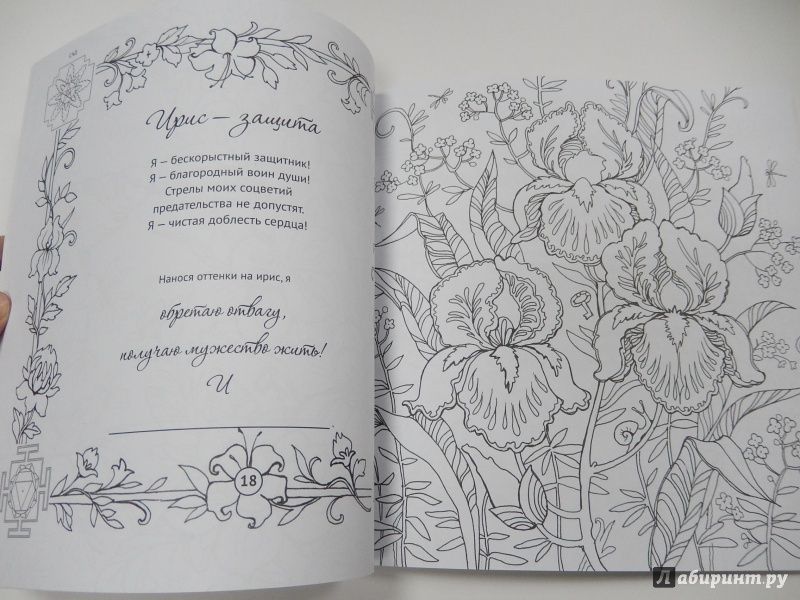 Ирис — защита
Я – бескорыстный защитник!
Я – благородный воин души!
Стрелы моих соцветий
предательства не допустят.
Я – чистая доблесть сердца!
Нанося оттенки на ирис, я
обретаю отвагу,
получаю мужество жить!
И
18
Лабиринт.ру